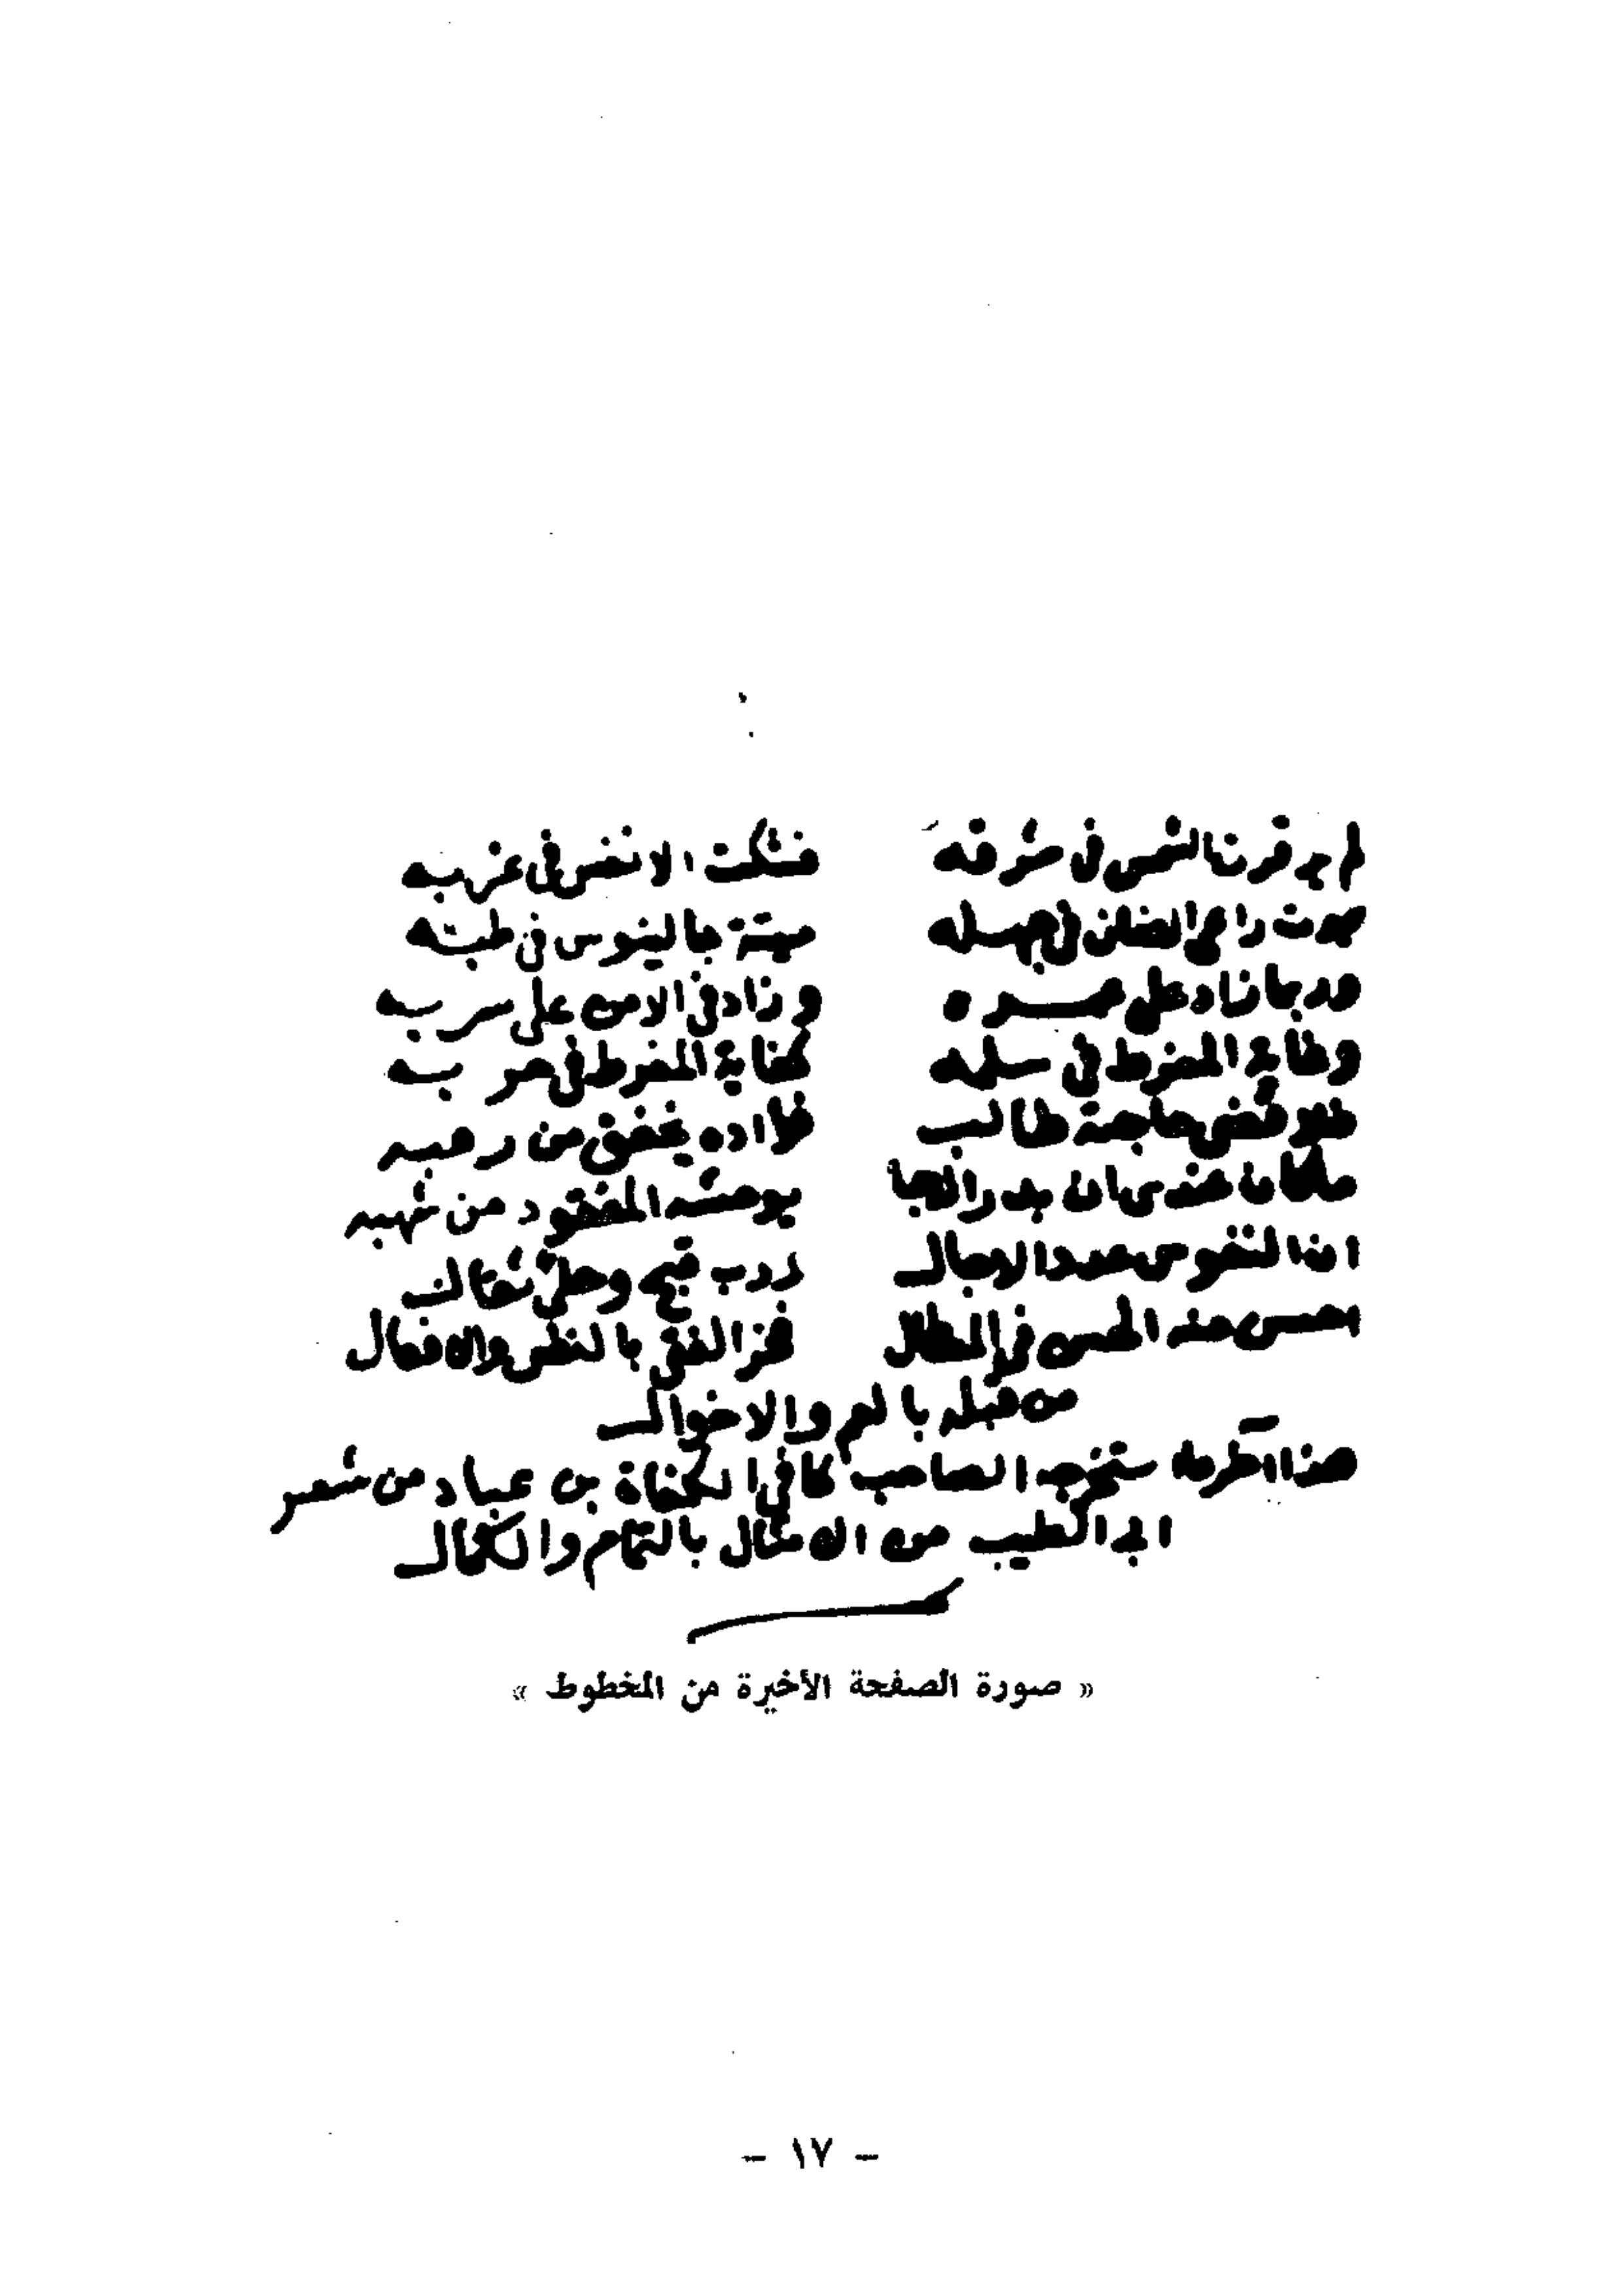 لم ير قرنا الشمس في شرقه فشكت الانفس في غربه
يموت راعي الضان في جهله ميتة جالينوس في طبه
وربما زاد على عمره وزاد في الامن على سربه
وغاية المفرط في سلمه كغاية المفرط في حربه
فلا قضى حاجته طالب فؤاده يخفق من رعبه
ما كان عندي ان بدر الدجا يوحشه المفقود من شهبه
ان النفوس عدد الاجال ورب قبح وحلى ثقال
احسن منها الحسن في المعطال فخر الفتى بالنفس والافعال
من قبله بالعم والاخوال
هذا اخر ما ستخرجه الصاحب كافي الكفاة بن عباد من شعر
ابي الطيب من الامثال بالتمام والكمال
« صورة الصفحة الأخيرة من المخطوط »
– ١٧ –